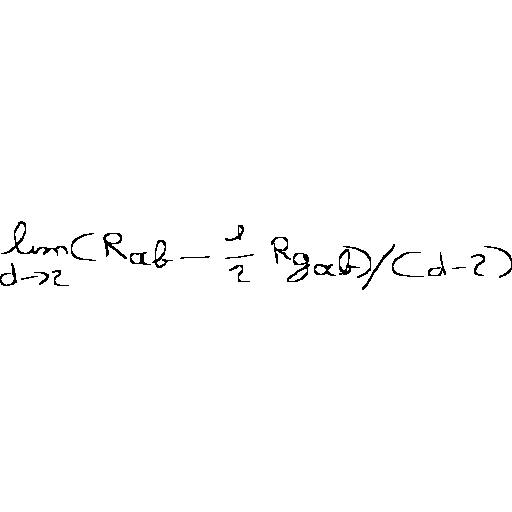 \lim_{d \to 2} (R_{ab} - \frac{1}{2} R g_{ab}) / (d-2)